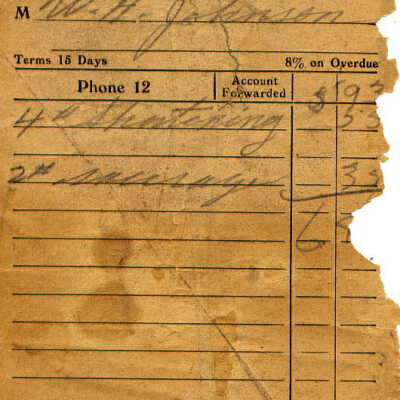 M W. H. Johnson
Terms 15 Days 8% on Overdue
Phone 12 Account Forwarded 5 93
4# Shortining 55
2# sausage 35
6